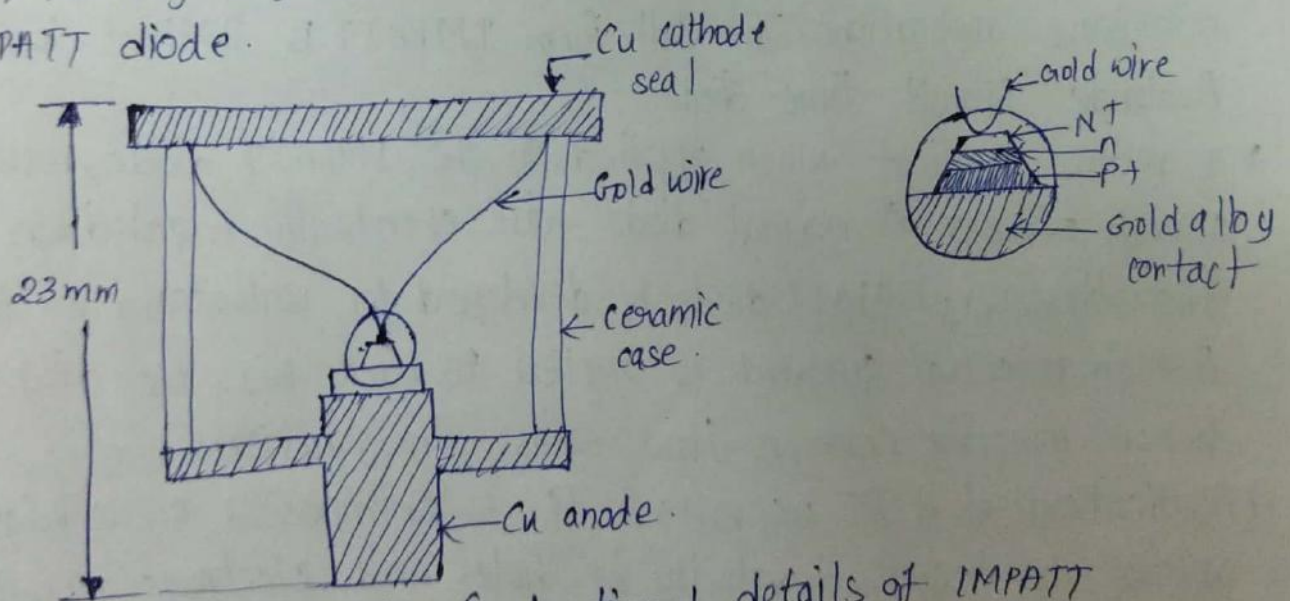 PATT diode.
Cu cathode
seal
Gold wire
ceramic
case.
23mm
Cu anode.
Gold wire
N+
n
P+
Gold alloy
contact
details of IMPATT